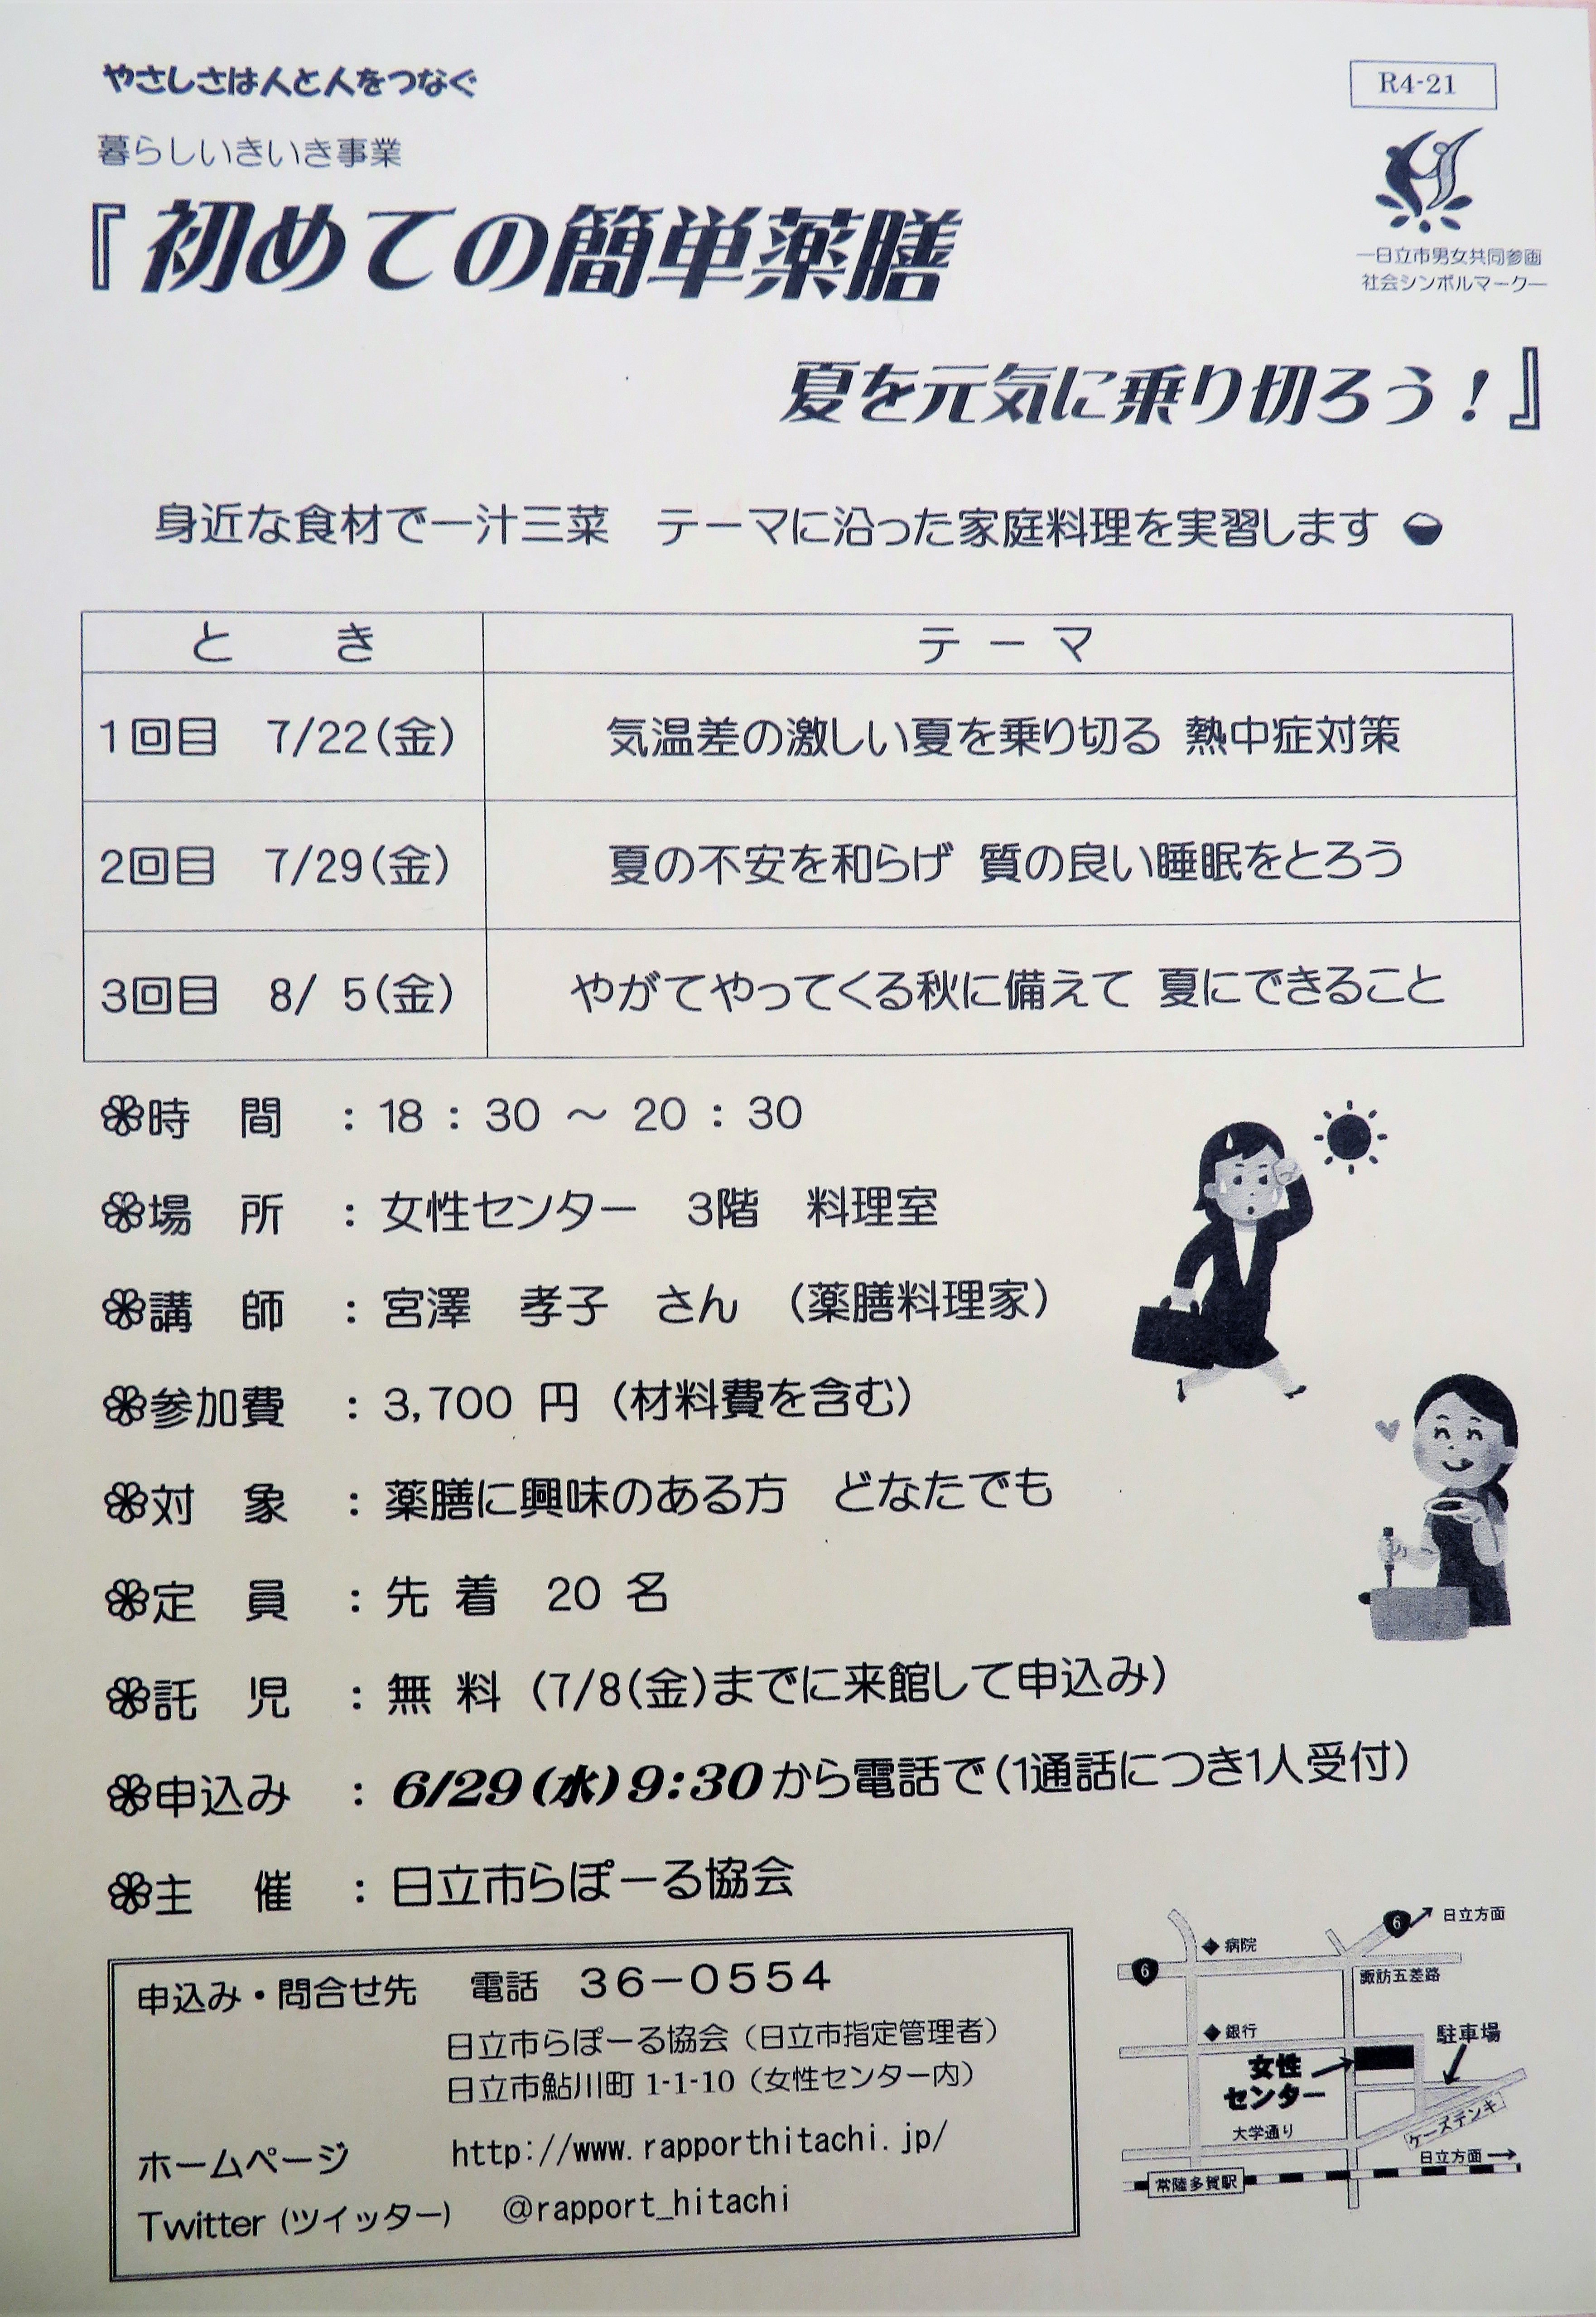 やさしさは人と人をつなぐ
R4-21
暮らしいきいき事業
『初めての簡単薬膳
―日立市男女共同参画
社会シンボルマーク―
夏を元気に乗り切ろう！』
身近な食材で一汁三菜　テーマに沿った家庭料理を実習します
と　き　テーマ
1回目　7/22(金)　気温差の激しい夏を乗り切る 熱中症対策
2回目　7/29(金)　夏の不安を和らげ 質の良い睡眠をとろう
3回目　8/ 5(金)　やがてやってくる秋に備えて 夏にできること
時　間　：18：30 ～ 20：30
場　所　：女性センター　3階　料理室
講　師　：宮澤　孝子　さん　(薬膳料理家)
参加費　：3,700 円 (材料費を含む)
対　象　：薬膳に興味のある方　どなたでも
定　員　：先 着　20 名
託　児　：無 料 (7/8(金)までに来館して申込み)
申込み　：6/29(水)9:30から電話で(1通話につき1人受付)
主　催　：日立市らぽーる協会
申込み・問合せ先　電話　36－0554
日立市らぽーる協会（日立市指定管理者）
日立市鮎川町 1-1-10（女性センター内）
ホームページ　http://www.rapporthitachi.jp/
Twitter (ツイッター)　@rapport_hitachi
6 日立方面
病院
6
諏訪五差路
銀行
駐車場
女性
センター
大学通り
ケーズデンキ
日立方面
常陸多賀駅